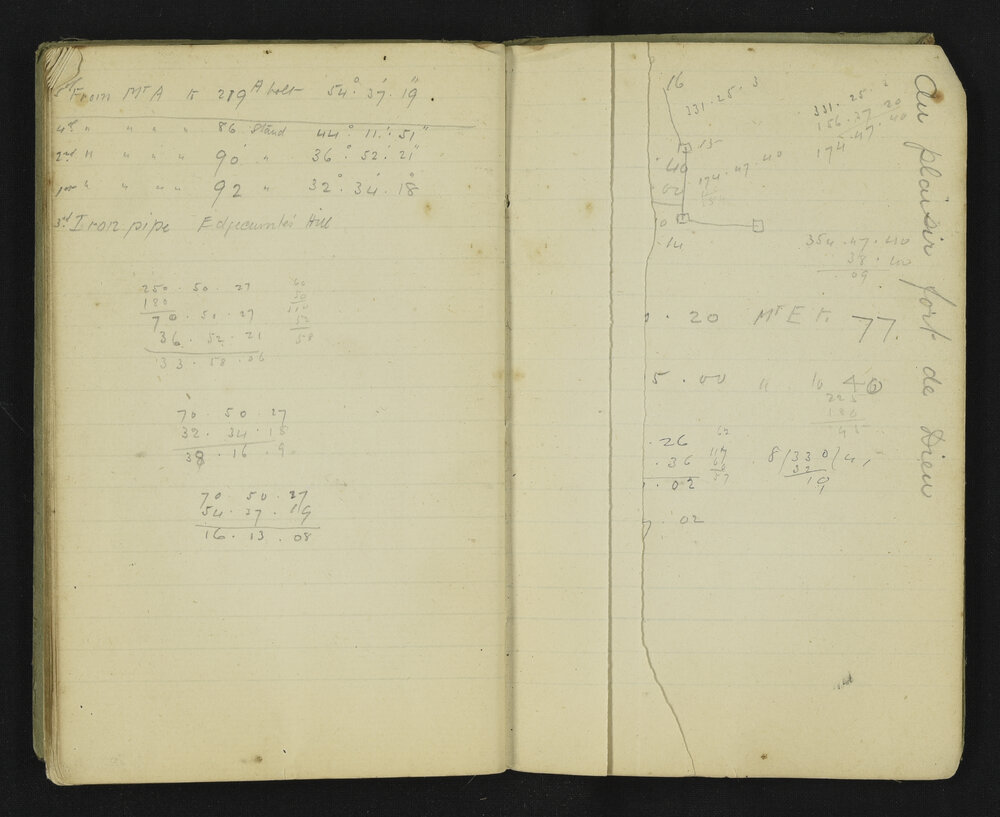 From Mt A to 289 A bolt 54° 37' 19".
4th " " " " 86 Stand 44° 11' 51"
2nd " " " " 90 " 36° 52' 21"
" " " " 92 " 32° 34' 18
3rd Iron pipe Edjecumbes Hill
250 . 50 . 27
180
70 . 50 . 27
36 . 52 . 21
33 . 58 . 06
60
50
110
52
58
70 . 50 . 27
32 . 34 . 18
38 . 16 . 9
70 . 50 . 27
54 . 37 . 19
16 . 13 . 08
16
331 . 25 . 3
15
40
02
174 . 47 . 40
0
14
331 . 25 .
156 . 37 . 20
174 . 47 . 40
354 . 47 . 40
38 . 00
. 09
1 . 20 Mt E to 77.
5 . 00 " to 40
225
180
45
. 26
. 36
1 . 02
8/330(4,
32
19
. 02
Au plaisir fort de Dieu